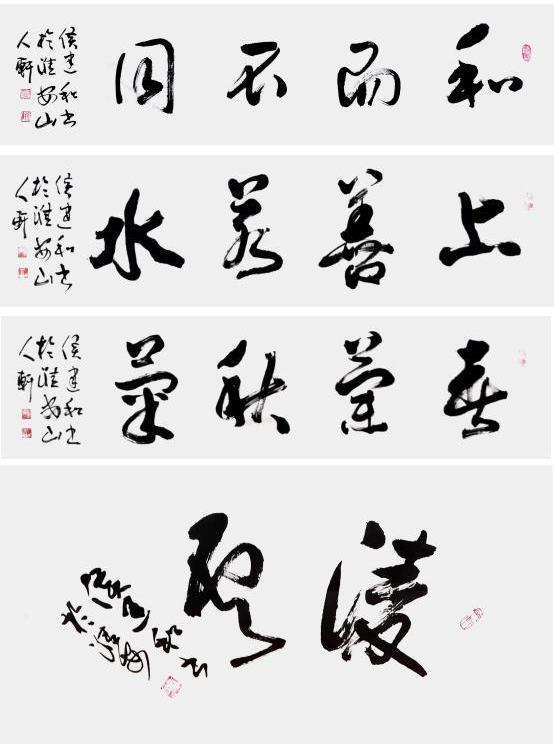 和而不同
侯建和书
於淮安山
人軒
上善若水
侯建和书
於淮安山
人軒
春蘭秋菊
侯建和书
於淮安山
人軒
侯建和书
於淮安